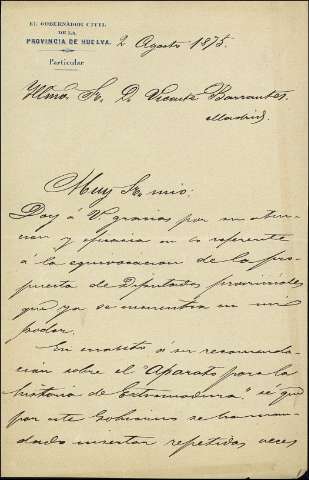 EL GOBERNADOR CIVIL
DE LA
PROVINCIA DE HUELVA.
Particular
2 Agosto 1875.
Ylmo. Sr. D. Vicente Barrantes.
Madrid.
Muy Sr. mio:
Doy á V. gracias por su aten-
cion y eficacia en lo referente
á la equivocacion de la pro-
puesta de Diputados provinciales
que ya se encuentra en mi
poder.
En cuanto á su recomenda-
cion sobre el "Aparato para la
historia de Extremadura" sé que
por este Gobierno se ha man-
dado insertar repetidas veces